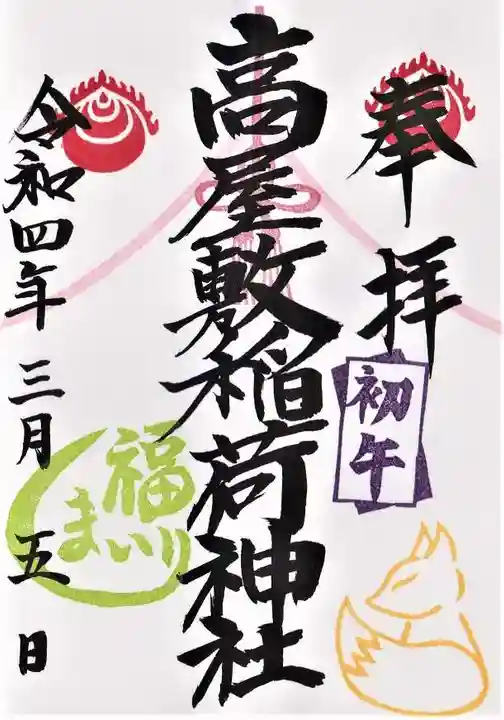 奉拝
初午
高屋敷稲荷神社
福まいり
令和四年三月五日